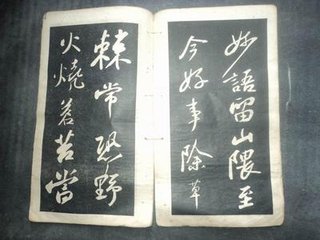 妙語留山隈至
今好事除草
棘常恐野
火燒若苔當